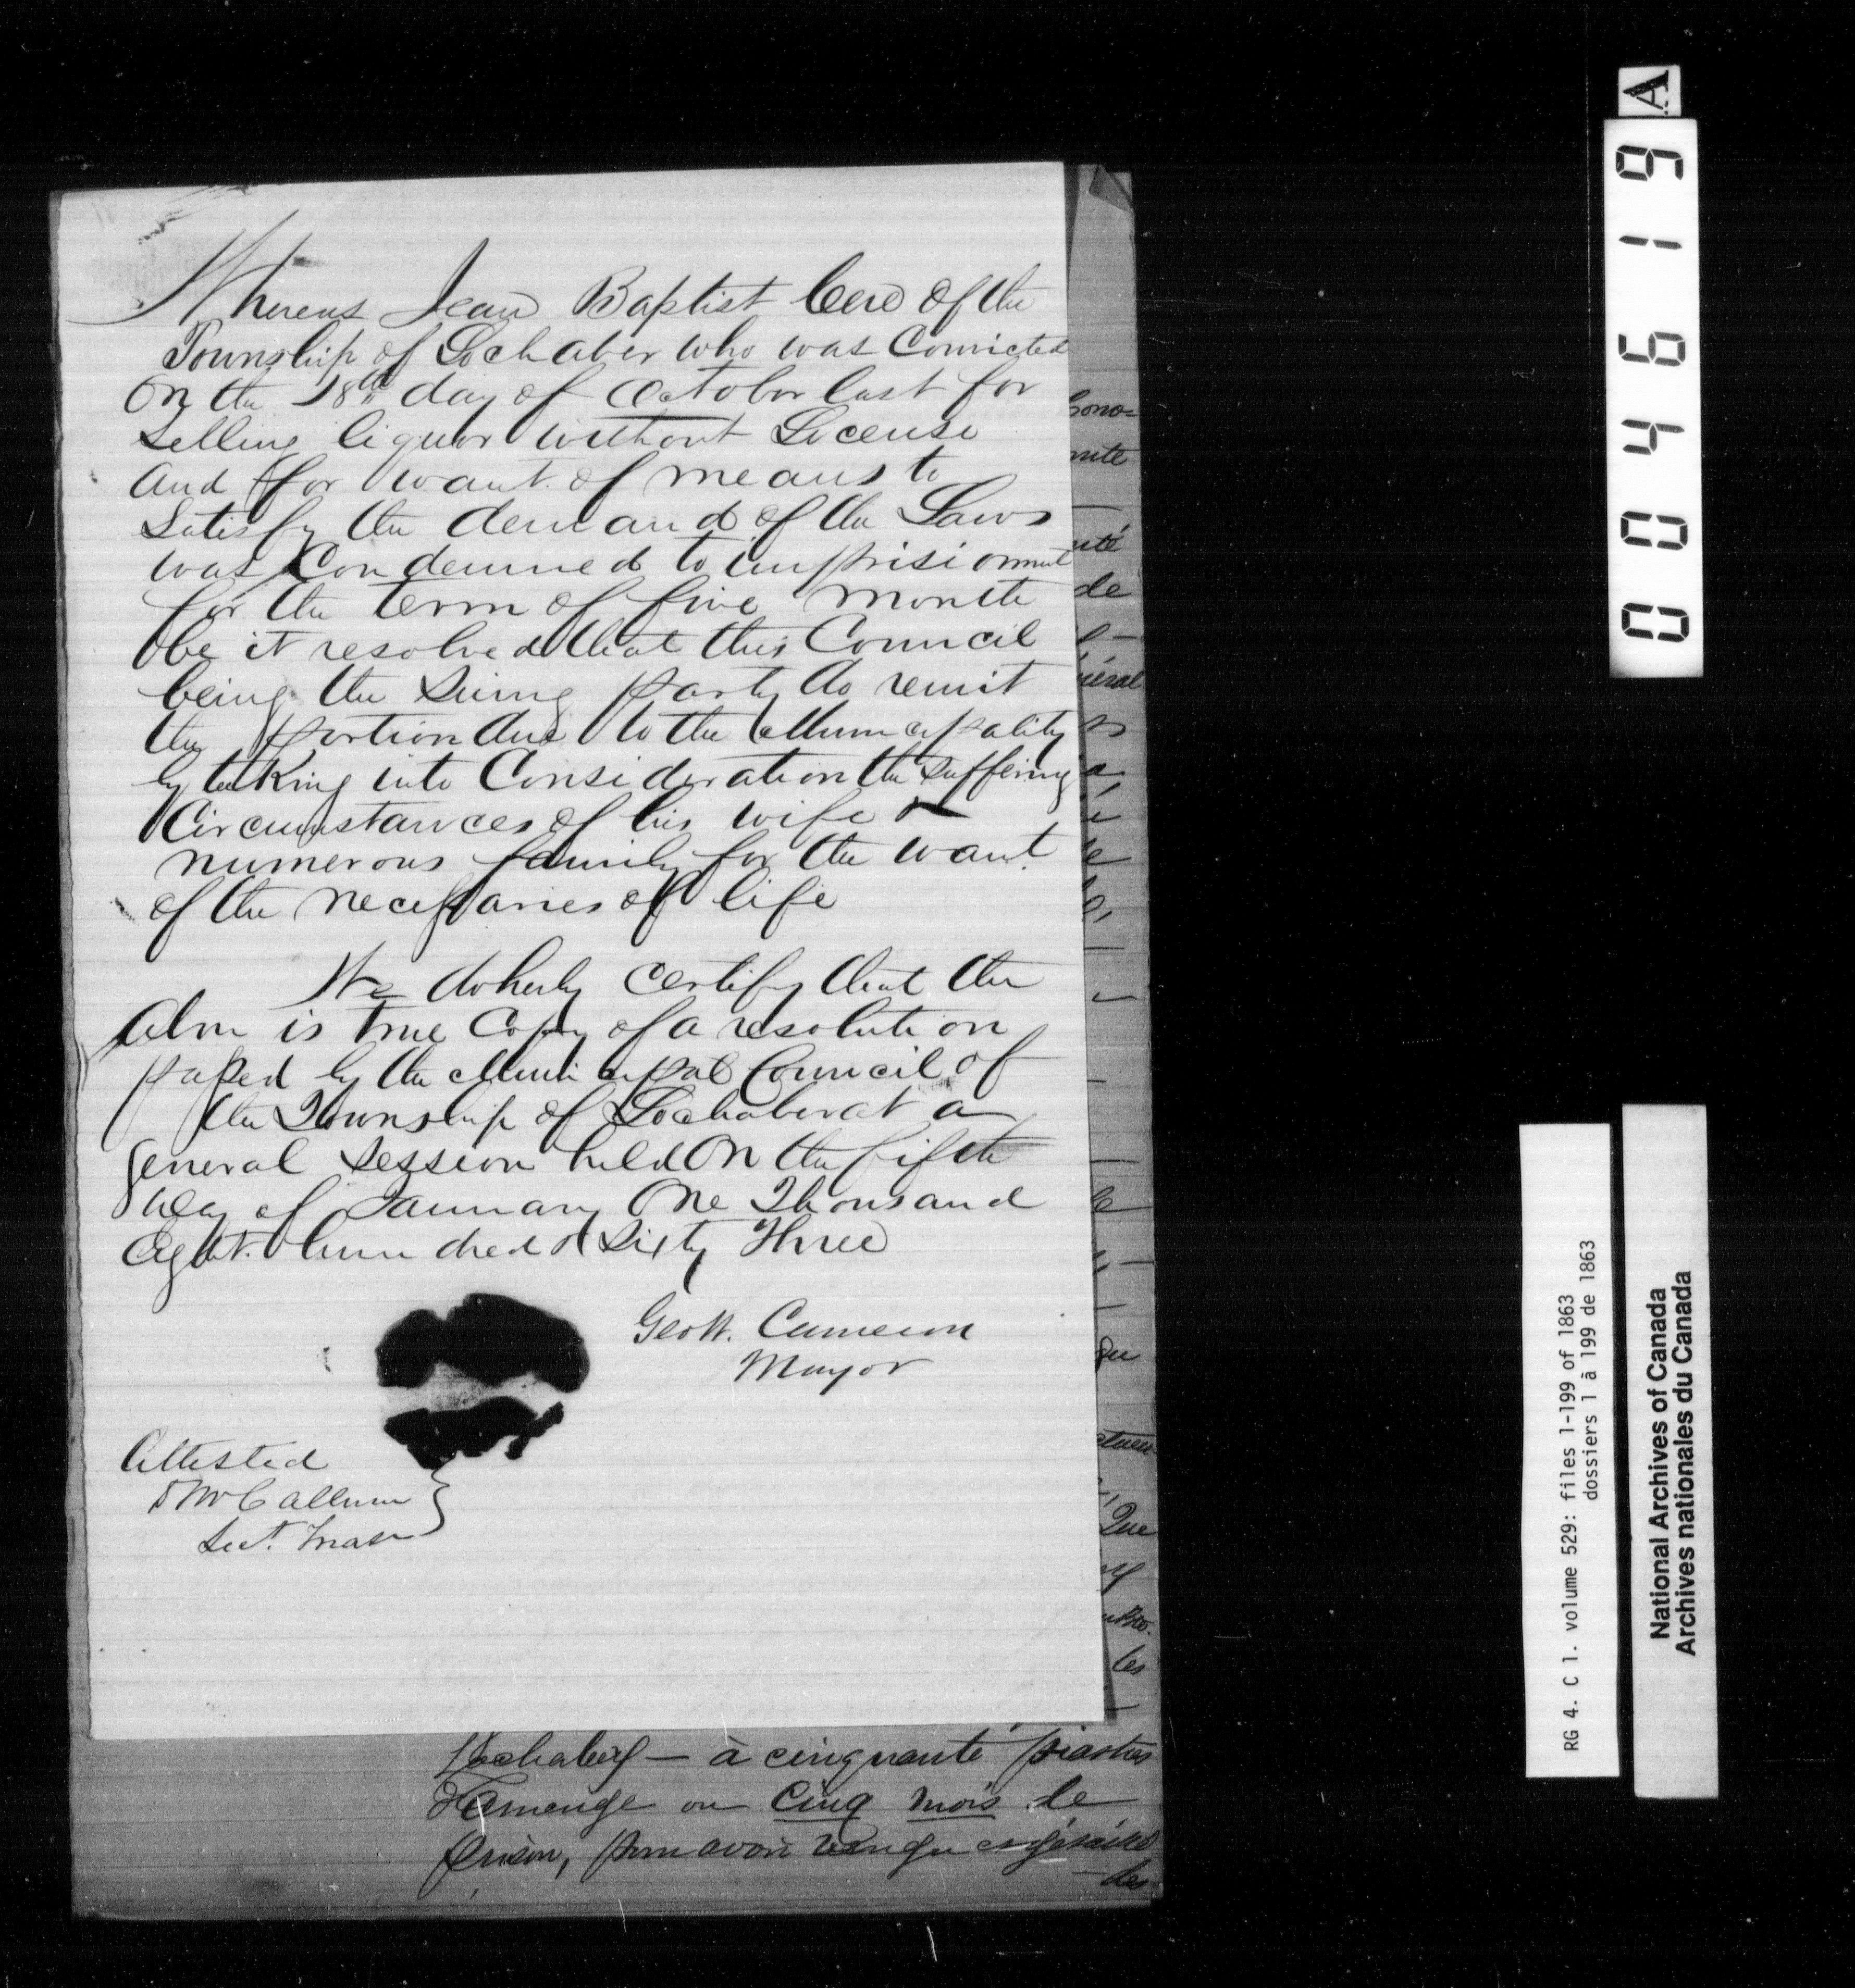 Whereas Jean Baptist Cere of the
Township of Lochaber who was Convicted
On the 28th day of October last for
Selling liquor without License
And for want of means to
Satisfy the demand of the Laws
was Condemned to imprisionment
for the term of five month
be it resolved that this Council
being the Suing party do remit
the portion due to the Municipality
by taking into Consideration the suffering
Circumstances of his wife &
numerous family for the want
of the necessaries of life
We do herby certify that the
above is true Copy of a resolution
passed by the Municipal Council of
the Township of Lochaber at a
general Session held On the fifth
day of January One Thousand
Eight hundred & Sixty Three
Geo W. Cameron
Mayor
Attested
D McCallum
Sec. Treas
Lochaber — à cinquante piastres
d'Amende ou Cinq mois de
Prison, pour avoir vendu en détail
— des
nité
de
Que
les
A
004619
RG 4. C 1. volume 529: files 1-199 of 1863
dossiers 1 à 199 de 1863
National Archives of Canada
Archives nationales du Canada